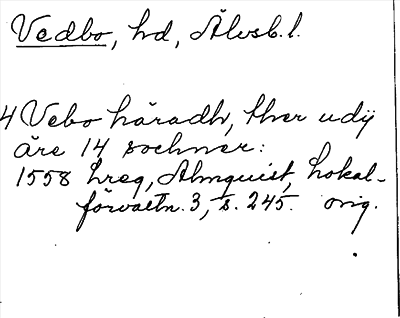 Vedbo, hd, Älvsb.l.
4 Vebo häradh, ther udij
äre 14 sochner:
1558 Lreg, Almquist, Lokal-
förvaltn. 3, s. 245. orig.